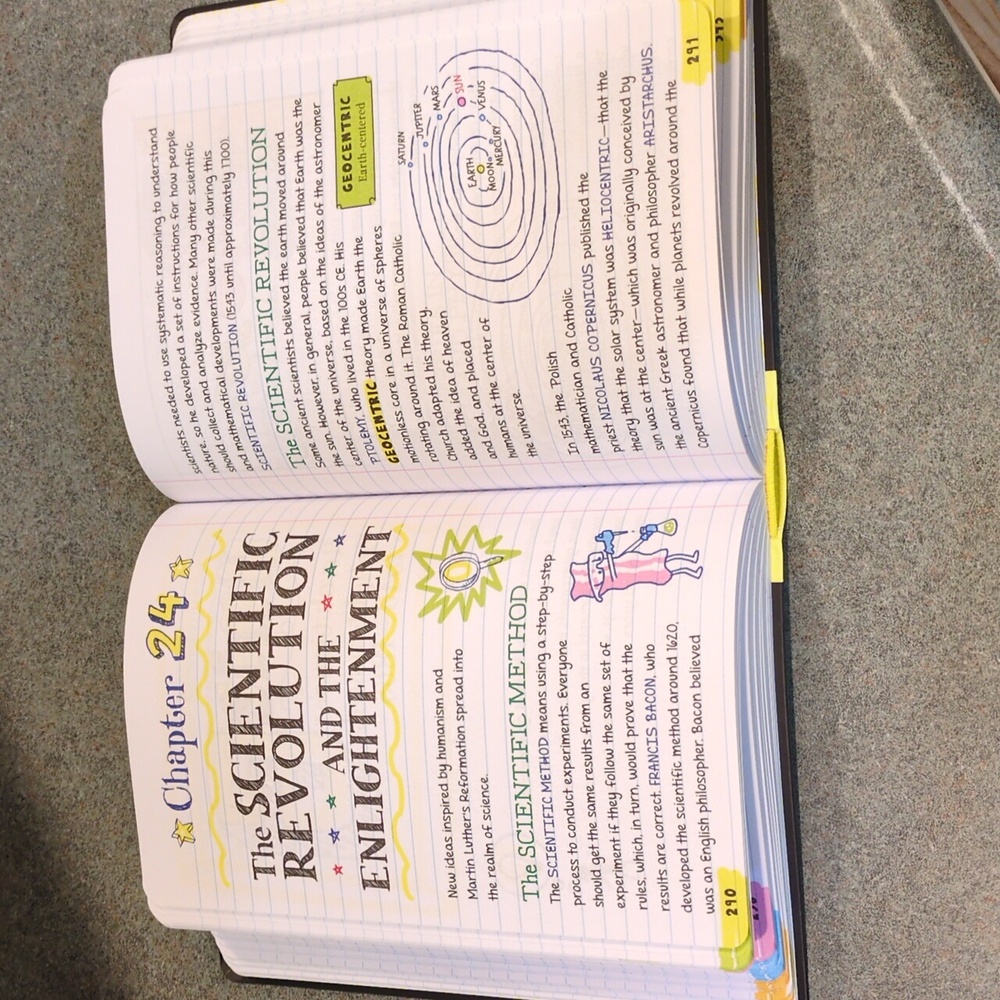 Chapter 24
The SCIENTIFIC
REVOLUTION
AND THE
ENLIGHTENMENT
New ideas inspired by humanism and
Martin Luther's Reformation spread into
the realm of science.
The SCIENTIFIC METHOD
The SCIENTIFIC METHOD means using a step-by-step
process to conduct experiments. Everyone
should get the same results from an
experiment if they follow the same set of
rules, which, in turn, would prove that the
results are correct. FRANCIS BACON, who
developed the scientific method around 1620,
was an English philosopher. Bacon believed
290
scientists needed to use systematic reasoning to understand
nature, so he developed a set of instructions for how people
should collect and analyze evidence. Many other scientific
and mathematical developments were made during this
SCIENTIFIC REVOLUTION (1543 until approximately 1700).
The SCIENTIFIC REVOLUTION
Some ancient scientists believed the earth moved around
the sun. However, in general, people believed that Earth was the
center of the universe, based on the ideas of the astronomer
PTOLEMY, who lived in the 100s CE. His
GEOCENTRIC theory made Earth the
motionless core in a universe of spheres
rotating around it. The Roman Catholic
Church adapted his theory,
added the idea of heaven
and God, and placed
humans at the center of
the universe.
GEOCENTRIC
Earth-centered
SATURN
JUPITER
MARS
SUN
VENUS
MERCURY
EARTH
MOON
In 1543, the Polish
mathematician and Catholic
priest NICOLAUS COPERNICUS published the
theory that the solar system was HELIOCENTRIC—that the
sun was at the center—which was originally conceived by
the ancient Greek astronomer and philosopher ARISTARCHUS.
Copernicus found that while planets revolved around the
291